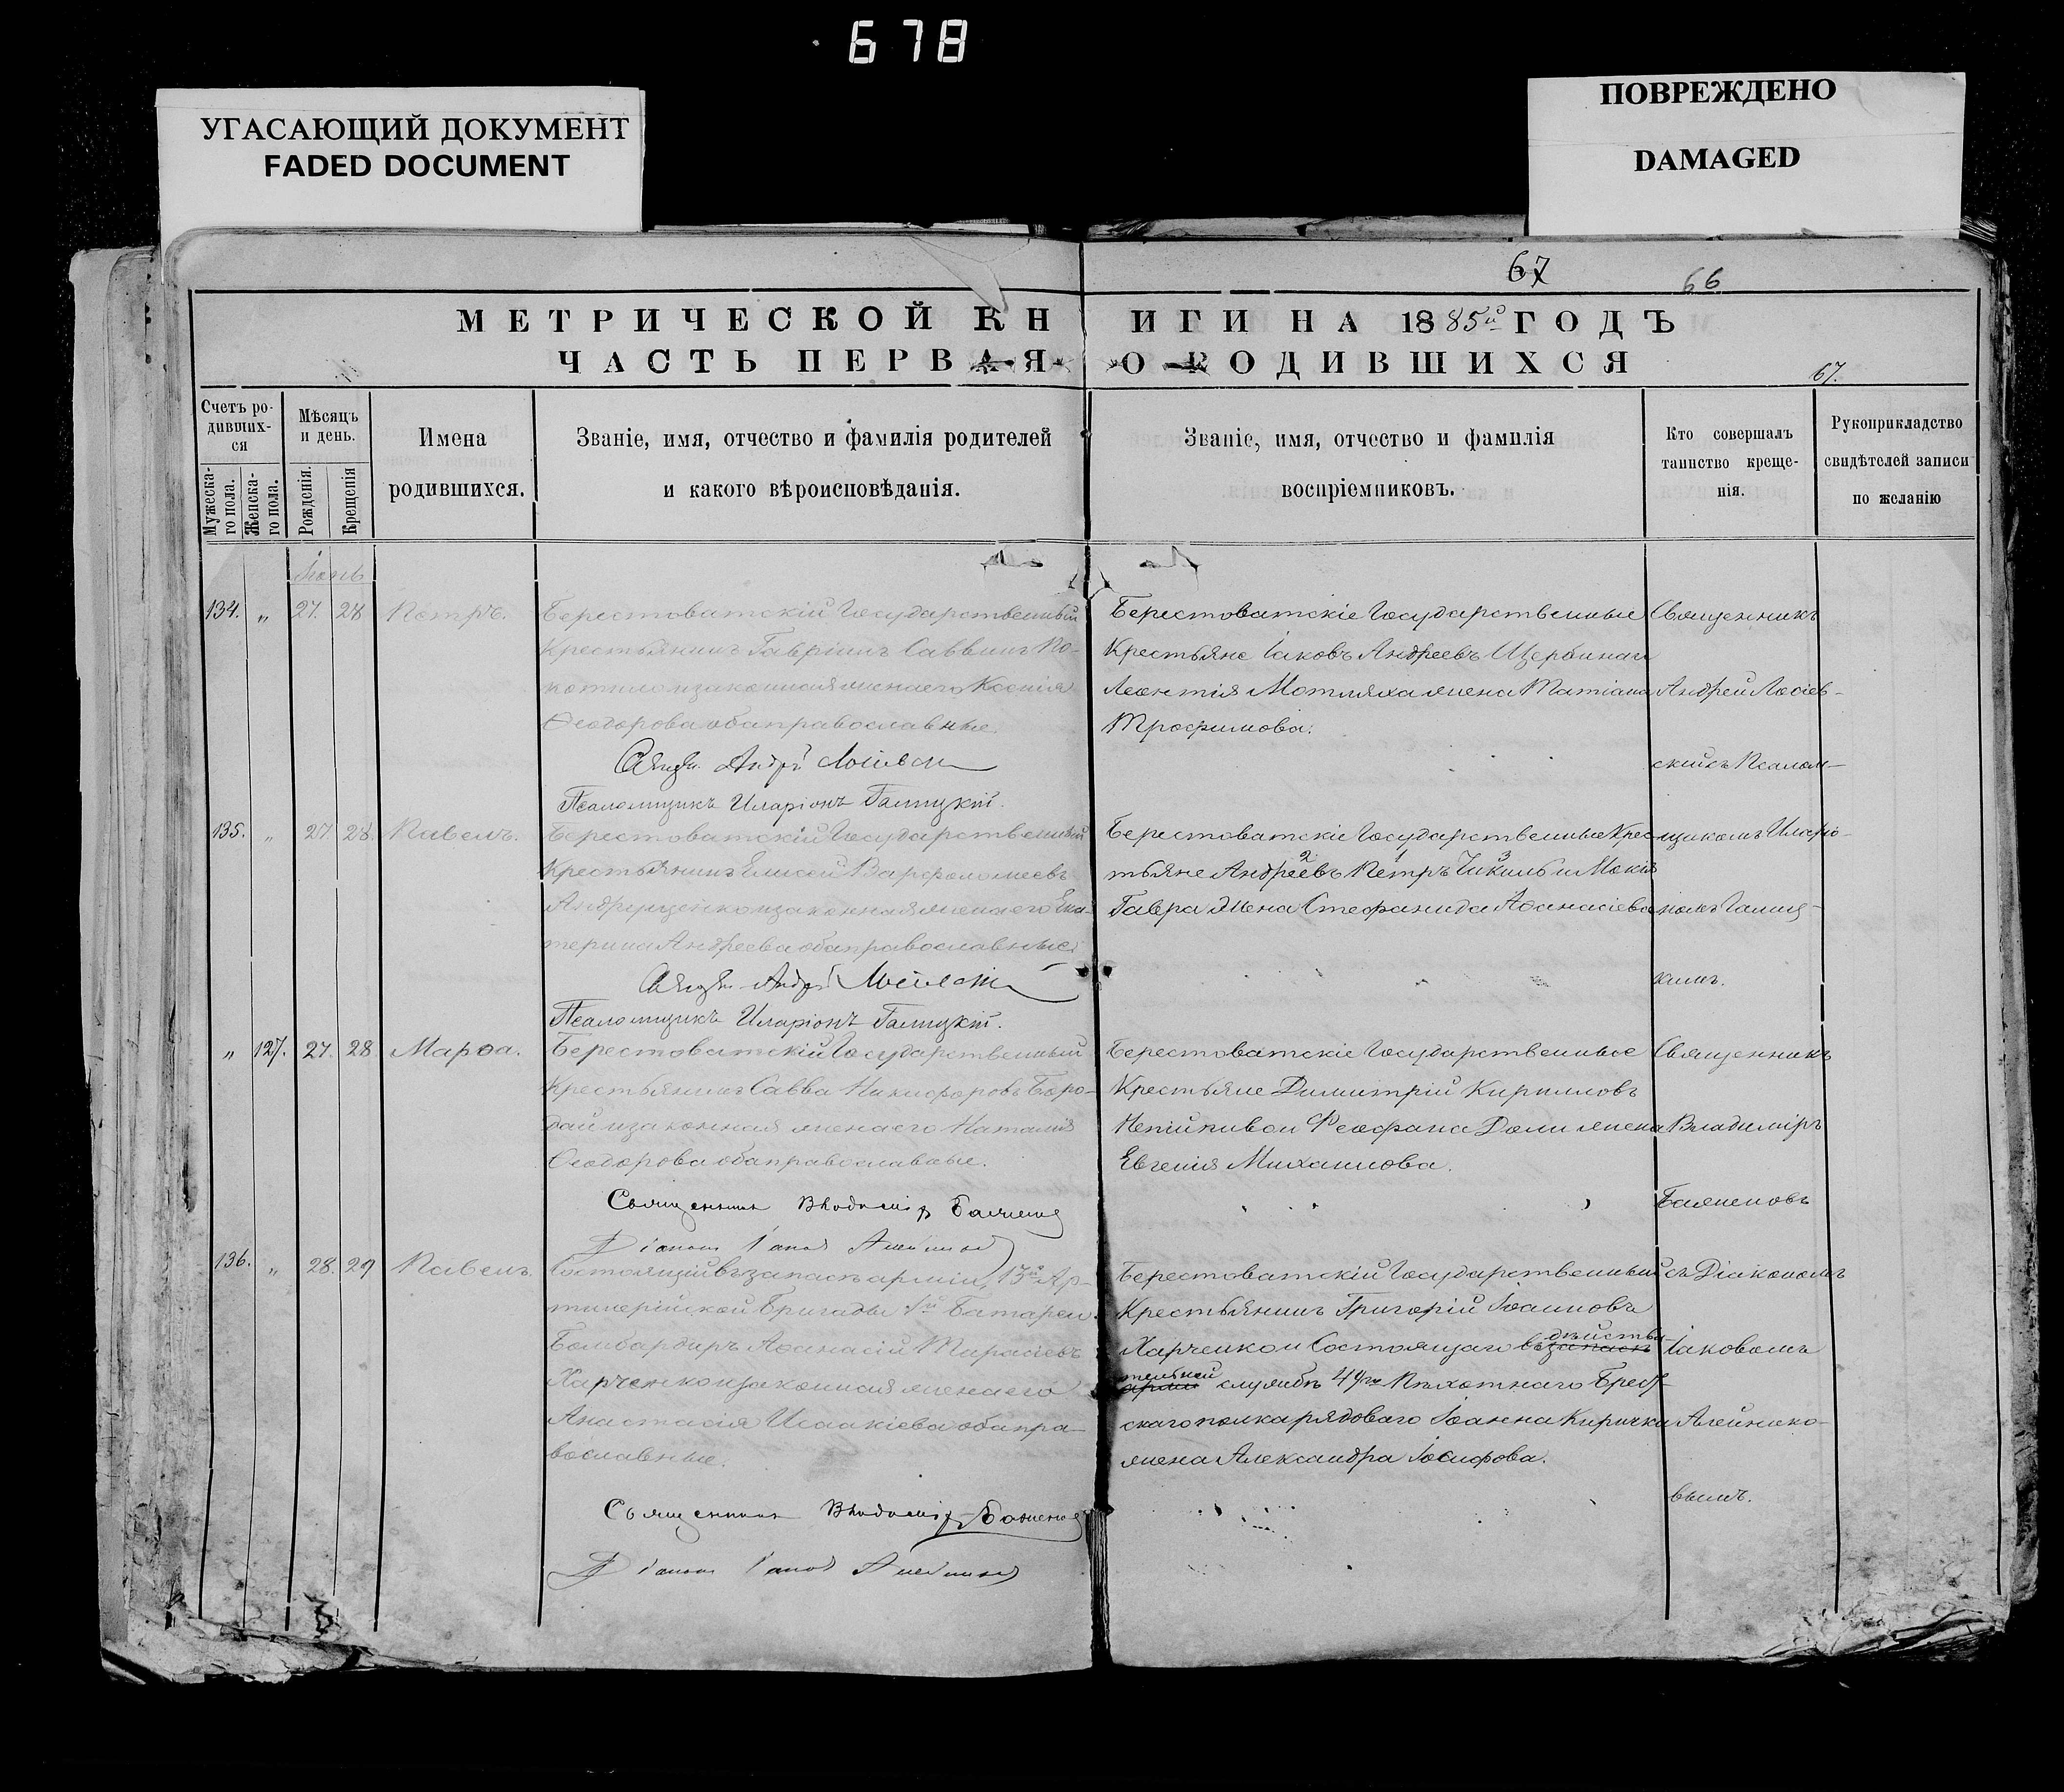 678
УГАСАЮЩИЙ ДОКУМЕНТ
FADED DOCUMENT
ПОВРЕЖДЕНО
DAMAGED
67
66
МЕТРИЧЕСКОЙ КНИГИ НА 1885й ГОДЪ
ЧАСТЬ ПЕРВАЯ О РОДИВШИХСЯ
67.
Счетъ ро-
дивших-
ся
Мужеска-
го пола.
Женска-
го пола.
Мѣсяцъ
и день.
Рожденія.
Крещенія
Имена
родившихся.
Званіе, имя, отчество и фамилія родителей
и какого вѣроисповѣданія.
Званіе, имя, отчество и фамилія
воспріемниковъ.
Кто совершалъ
таинство креще-
нія.
Рукоприкладство
свидѣтелей записи
по желанію
134. „ 27. 28 Петръ.
Берестоватскій Государственный
Крестьянинъ Гавріилъ Саввинъ По-
и законная жена его Ксенія
Ѳеодорова оба православные.
Андрей
Псаломщикъ Иларіонъ Галицкій.
Берестоватскіе Государственные
Крестьяне Іаковъ Андреевъ Щербина и
Леонтія Мотляха жена Татіана
Трофимова.
Священникъ
Андрей Лосіев-
скій съ Псалом-
135. „ 27 28. Павелъ.
Берестоватскій Государственный
Крестьянинъ Елисей Варфоломеевъ
и законная жена его Ека-
терина Андреева оба православные.
Псаломщикъ Иларіонъ Галицкій.
Берестоватскіе Государственные Крес-
тьяне Андреевъ Петръ и Мокія
2 1 3
Гавра жена Стефанида Аѳанасіева
щикомъ Иларіо-
номъ Галиц-
кимъ.
„ 127. 27. 28 Марѳа.
Берестоватскій Государственный
Крестьянинъ Савва Никифоровъ Боро-
дай и законная жена его Наталія
Ѳеодорова оба православные.
Священникъ Владиміръ Баженовъ
Діаконъ Іаковъ
Берестоватскіе Государственные
Крестьяне Димитрій Кирилловъ
Непійпиво и Феофана Доли жена
Евгенія Михаилова.
Священникъ
Владиміръ
Баженовъ
136. „ 28. 29 Павелъ.
Состоящій въ запасѣ арміи, 13й Ар-
тилерійской Бригады 5й Батареи
Бомбардиръ Аѳанасій Тарасіевъ
Харченко и законная жена его
Анастасія Исаакіева оба пра-
вославные.
Священникъ Владиміръ Баженовъ
Діаконъ Іаковъ
Берестоватскій Государственный
Крестьянинъ Григорій Іоанновъ
Харченко и Состоящаго въ запасѣ дѣйстви-
арміи тельной службѣ 49го Пѣхотнаго Брест-
скаго полка рядоваго Іоанна Киричка
жена Александра Іосифова.
съ Діакономъ
Іаковомъ
Алейнико-
вымъ.